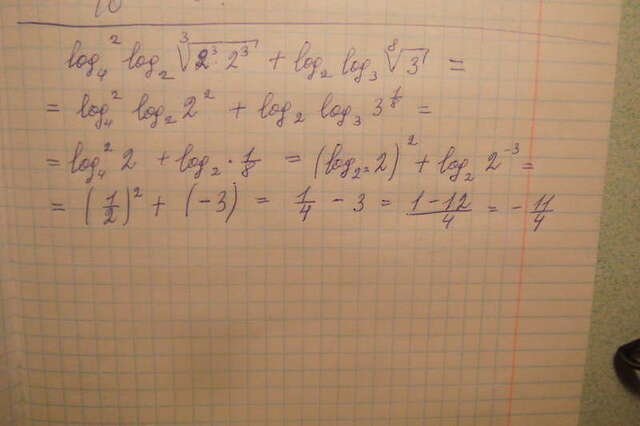 10
log₄² log₂ ∛(2³·2³) + log₂ log₃ ⁸√3 =
= log₄² log₂ 2² + log₂ log₃ 3^(1/8) =
= log₄² 2 + log₂ · 1/8 = (log₂² 2)² + log₂ 2⁻³ =
= (1/2)² + (-3) = 1/4 - 3 = (1-12)/4 = -11/4